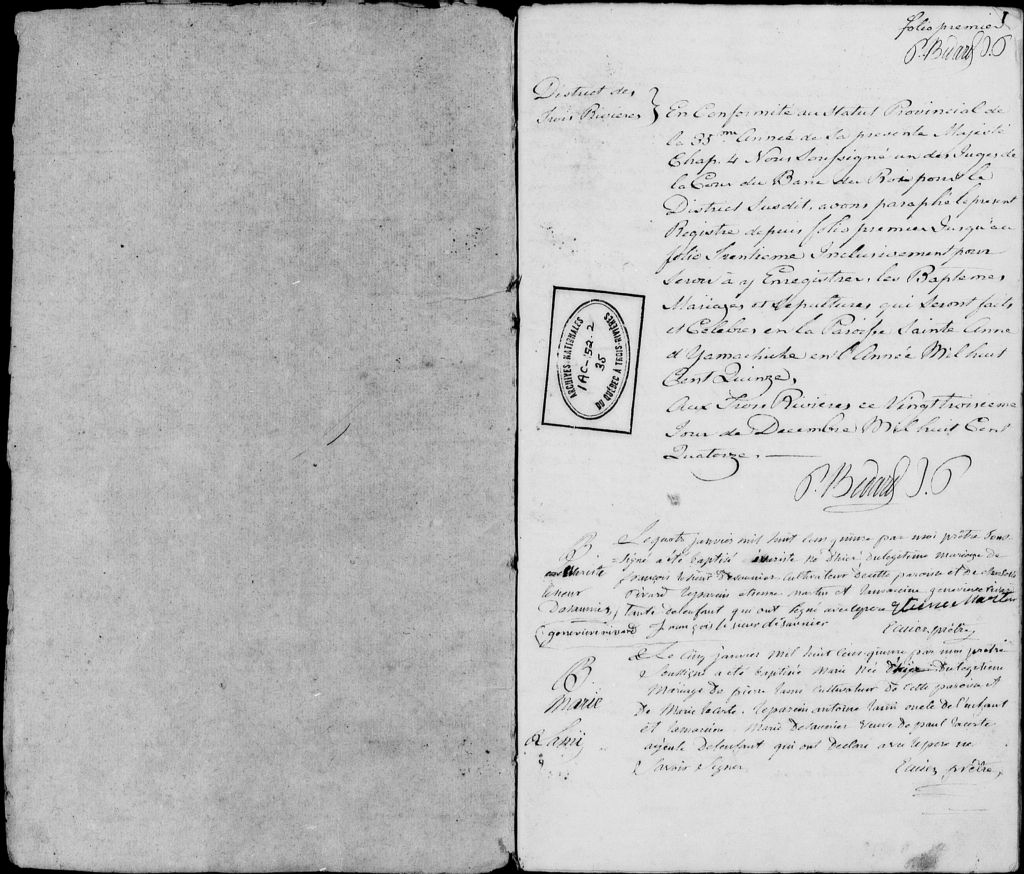 1
folio premier
P. Bedard J. P
District des
Trois Rivieres } En Conformité au Statut Provincial de
la 35me Année de Sa presente Majesté
Chap. 4 Nous Soussigné un des Juges de
la Cour du Banc du Roi pour le
District Susdit, avons paraphé le present
Registre depuis folio premier Jusqu'au
folio Trentieme Inclusivement pour
Servir à y Enregistrer les Baptemes
Mariages et Sepultures qui Seront faits
et Celebrés en la Paroisse Sainte Anne
d'Yamachiche en l'Année Mil huit
Cent Quinze,
Aux Trois Rivieres ce Vingt troisieme
Jour de Decembre Mil huit Cent
Quatorze.
P. Bedard J. P
ARCHIVES NATIONALES
1AC-152.2
35
DU QUÉBEC À TROIS-RIVIÈRES
B
lesieur
Desaunier
genevieve rivard
Le quatre janvier mil huit cens quinze par moi prêtre sous
signé a été baptisé né d'hier du legitime mariage de
françois lesieur Desaunier cultivateur de cette paroisse et de
Rivard le parain etienne martin et la maraine genevieve rivard
tante de l'enfant qui ont signé avec le pere Etienne Martin
françois le sieur désaunier prêtre
B.
Marie
Lami
Le cinq janvier mil huit cens quinze par moi prêtre
Soussigné a été baptisée marie née d'hier du legitime
mariage de pierre lami cultivateur de cette paroisse et
De Marie lacerte. le parain antoine lami oncle de l'enfant
et la maraine Marie Desaunier veuve de paul lacerte
ayeule de l'enfant qui ont declaré avec le pere ne
Savoir Signer prêtre